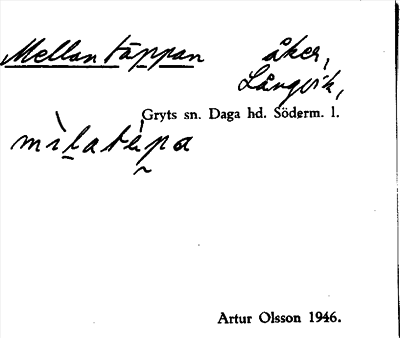 Mellantäppan åker,
Långvik,
Gryts sn. Daga hd. Söderm. l.
mìlatépa
Artur Olsson 1946.